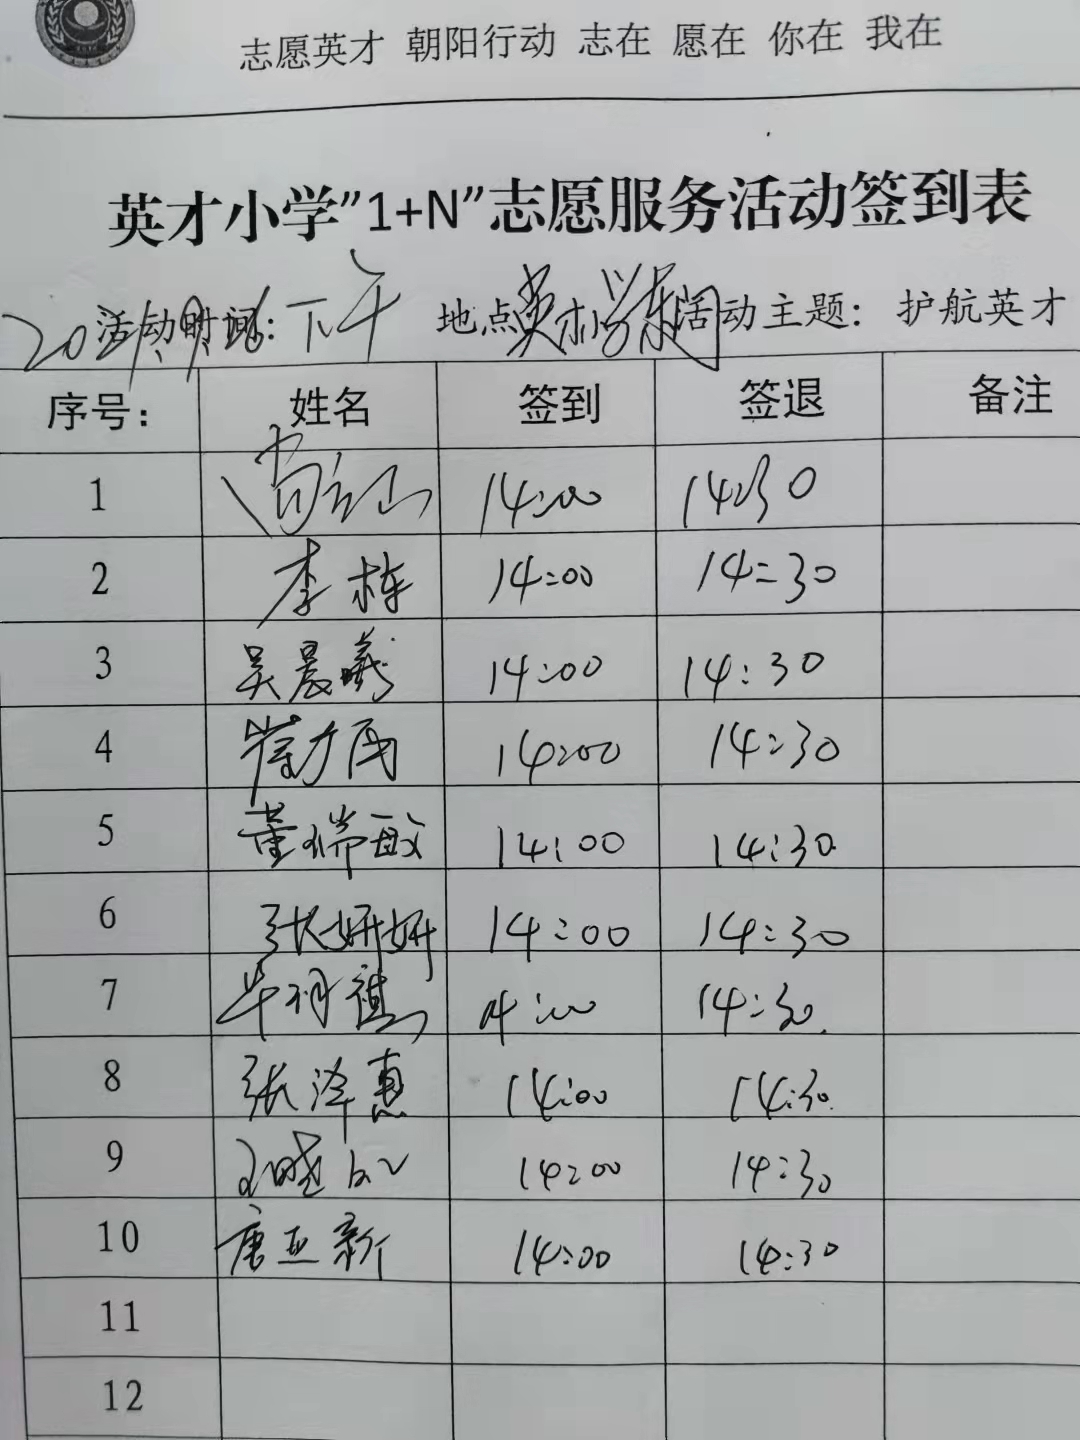 志愿英才 朝阳行动 志在 愿在 你在 我在
英才小学"1+N"志愿服务活动签到表
活动时间: 下午 地点 英才小学东门 活动主题: 护航英才
序号: 姓名 签到 签退 备注
1 14:00 14:30
2 李栋 14:00 14:30
3 吴晨曦 14:00 14:30
4 14:00 14:30
5 董瑞敏 14:00 14:30
6 张妍妍 14:00 14:30
7 14:00 14:30
8 张泽惠 14:00 14:30
9 14:00 14:30
10 唐亚新 14:00 14:30
11
12